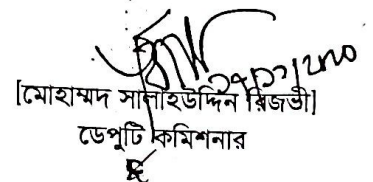 [মোহাম্মদ সালাহউদ্দিন রিজভী]
ডেপুটি কমিশনার